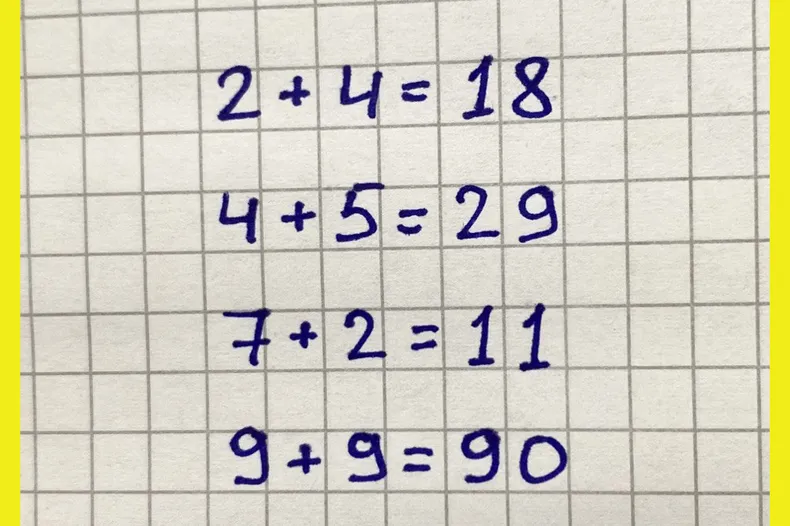 2 + 4 = 18
4 + 5 = 29
7 + 2 = 11
9 + 9 = 90